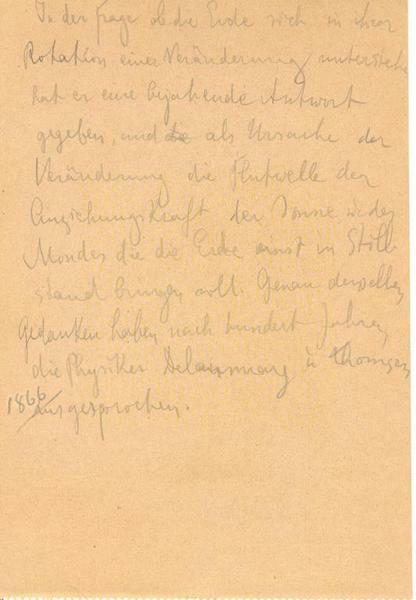 In der Frage ob die Erde sich in ihrer
Rotation einer Veränderung unterstehe
hat er eine bejahende Antwort
gegeben, und als Ursache der
Veränderung die Flutwelle der
Anziehungskraft der Sonne u. des
Mondes die die Erde einst in Still
stand bringen soll. Genau denselben
Gedanken haben nach hundert Jahren
die Physiker Delaunnay u Thomson
1866 ausgesprochen.